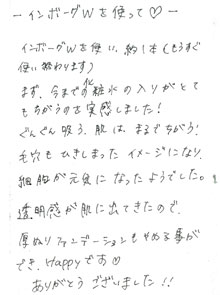 －インボーグWを使って♡－
インボーグWを使い、約1本(もうすぐ
使い終わります)
まず、今までの化粧水の入りがとて
もちがうのを実感しました!
ぐんぐん吸う、肌は、まるでちがう!
毛穴もひきしまったイメージになり、
細胞が元気になったようでした。
透明感が肌に出てきたので、
厚ぬりファンデーションもやめる事が
でき、Happyです♡
ありがとうございました!!